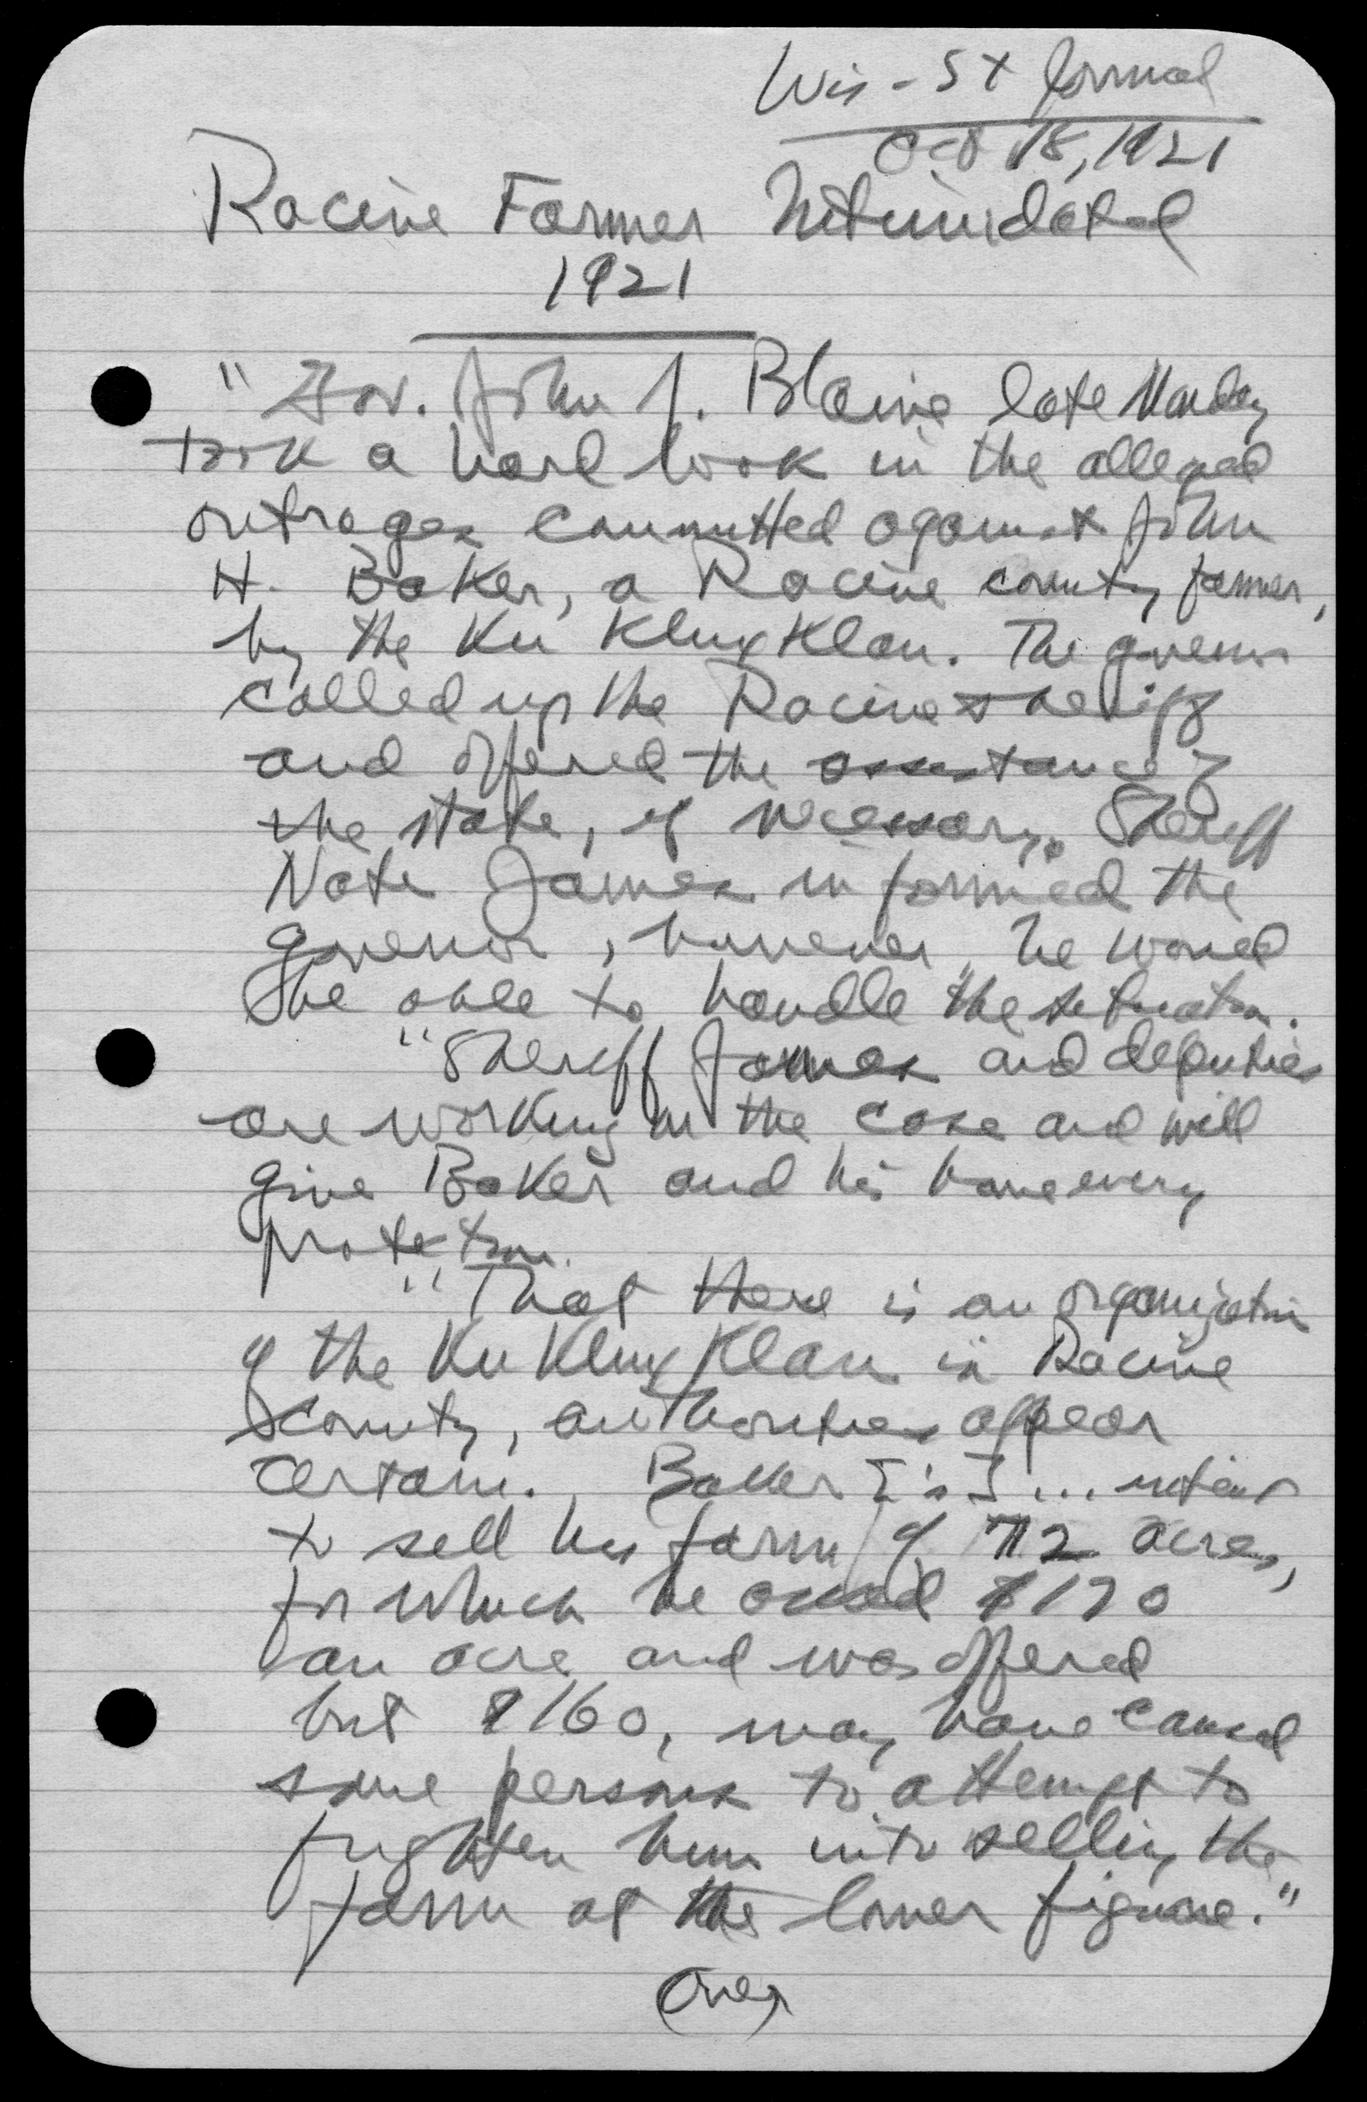 Wis - St Journal
Oct 18, 1921
Racine Farmer Intimidated
1921
"Gov. John J. Blaine late Monday
took a hand in the alleged
outrages committed against John
H. Baker, a Racine county farmer,
by the Ku Klux Klan. The governor
called up the Racine sheriff
and offered the assistance of
the state, if necessary. Sheriff
Nate James informed the
governor, however, he would
be able to handle the situation.
"Sheriff James and deputies
are working on the case and will
give Baker and his home every
protection.
"That there is an organization
of the Ku Klux Klan in Racine
county, authorities appear
certain. Baker ['s] ...
to sell his farm of 72 acres,
for which he asked $170
an acre and was offered
but $160, may have caused
some persons to attempt to
frighten him into selling the
farm at the lower figure."
(over)